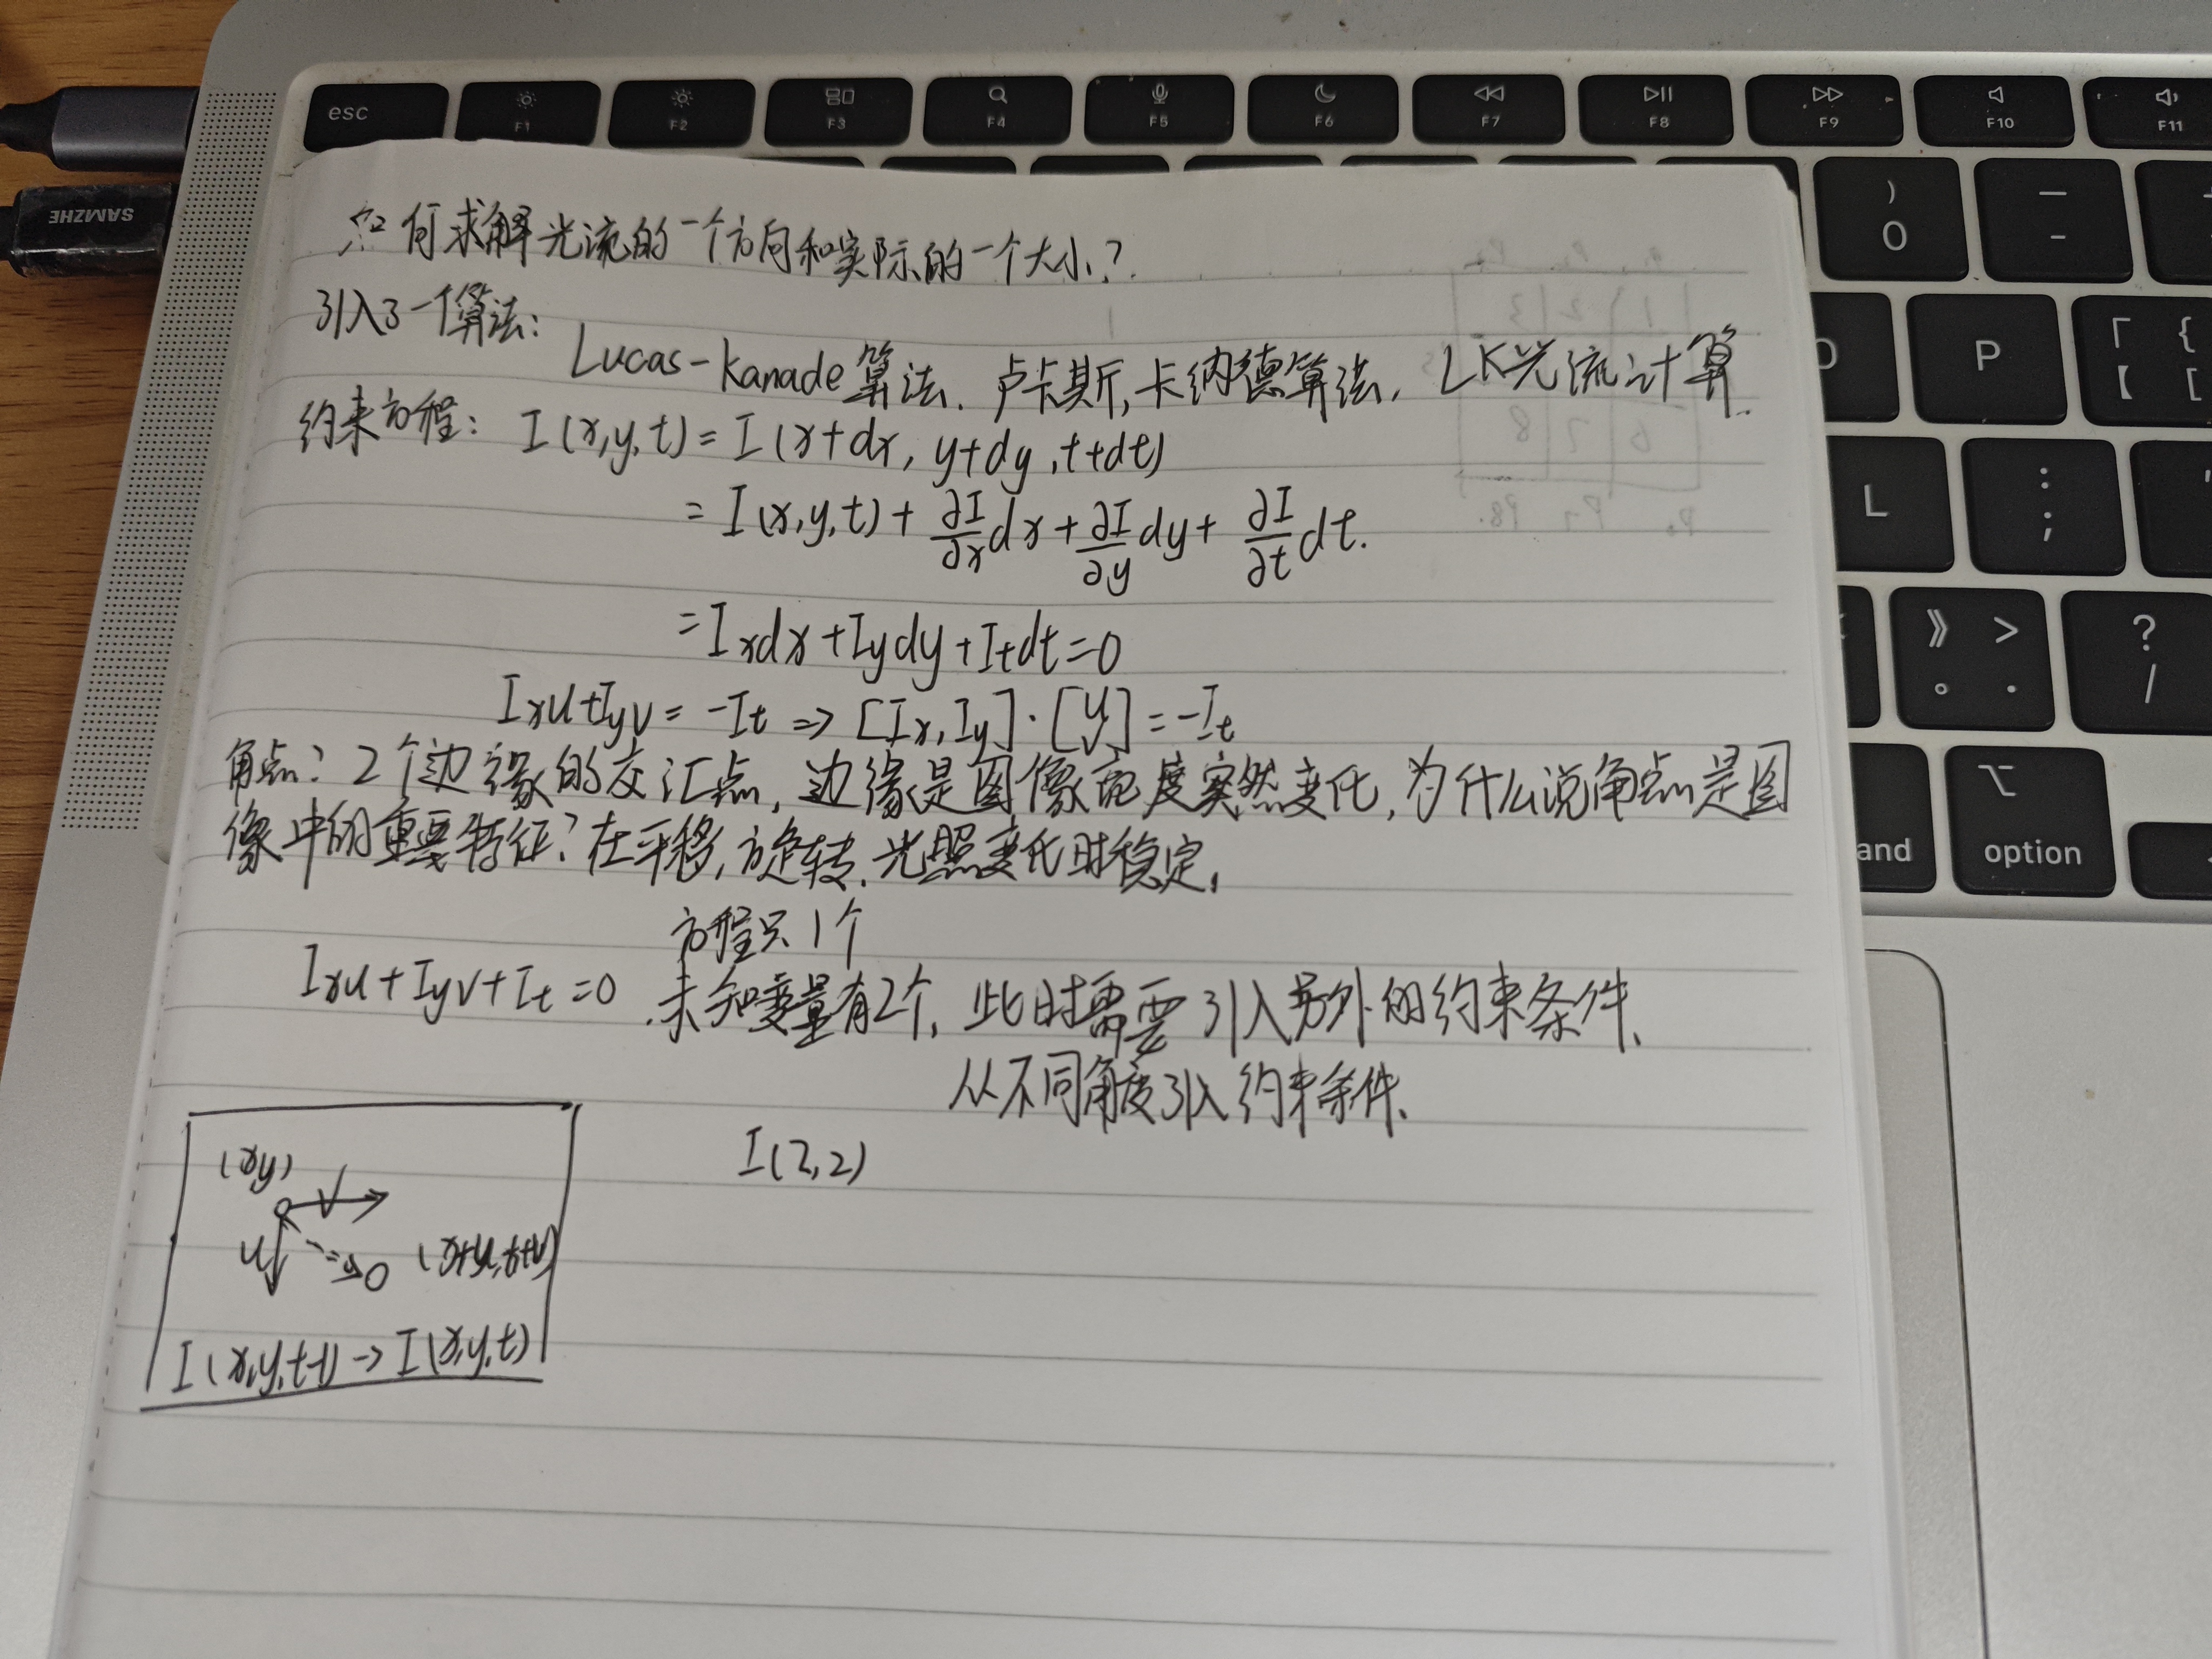 esc
F1
F2
F3
F4
F5
F6
F7
F8
F9
F10
F11
SAMZHE
) 0
— -
P
「 {
【 [
L
: ;
》 >
。 .
? /
and
option
如何求解光流的一个方向和实际的一个大小?
引入了一个算法:
Lucas-Kanade算法、卢卡斯,卡纳德算法, LK光流计算.
约束方程: I(x,y,t)=I(x+dx, y+dy, t+dt)
= I(x,y,t)+ ∂I/∂x dx + ∂I/∂y dy + ∂I/∂t dt.
= Ixdx+Iydy+Itdt=0
Ixu+Iyv= -It => [Ix,Iy]·[u v]=-It
角点? 2个边缘的交汇点, 边缘是图像亮度突然变化, 为什么说角点是图
像中的重要特征? 在平移, 旋转, 光照变化时稳定,
方程只1个
Ixu+Iyv+It=0 未知变量有2个, 此时需要引入另外的约束条件、
从不同角度引入约束条件、
I(2,2)
(x,y)
v
u
(x+u,y+v)
I(x,y,t-1)→I(x,y,t)